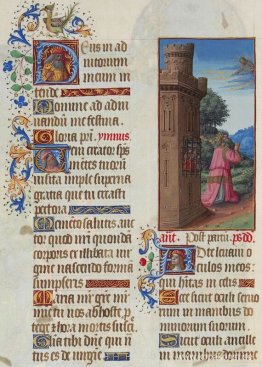 Deus in ad
iutorium
meum in
tende
Domine ad adiu
uandum me festina
Gloria pri. ymnus.
Veni creator sps
mentes tuorū
uisita imple superna
gratia que tu creasti
pectora
Memento salutis auc
tor quod nr̄i quondā
corporis ex illibata uir
gine nascendo formā
sumpseris
Maria mr̄ grē mr̄
mīe tu nos ab hoste p
tege & hora mortis suscipe
Gloria tibi dn̄e qui na
tus es de uirgīe
ant. Post partū. ps. D
Ad te leuaui o
culos meos
qui hitas in celis
Ecce sicut oculi seruo
rum in manibus do
minorum suorum
Sicut oculi ancille
in manibus domine